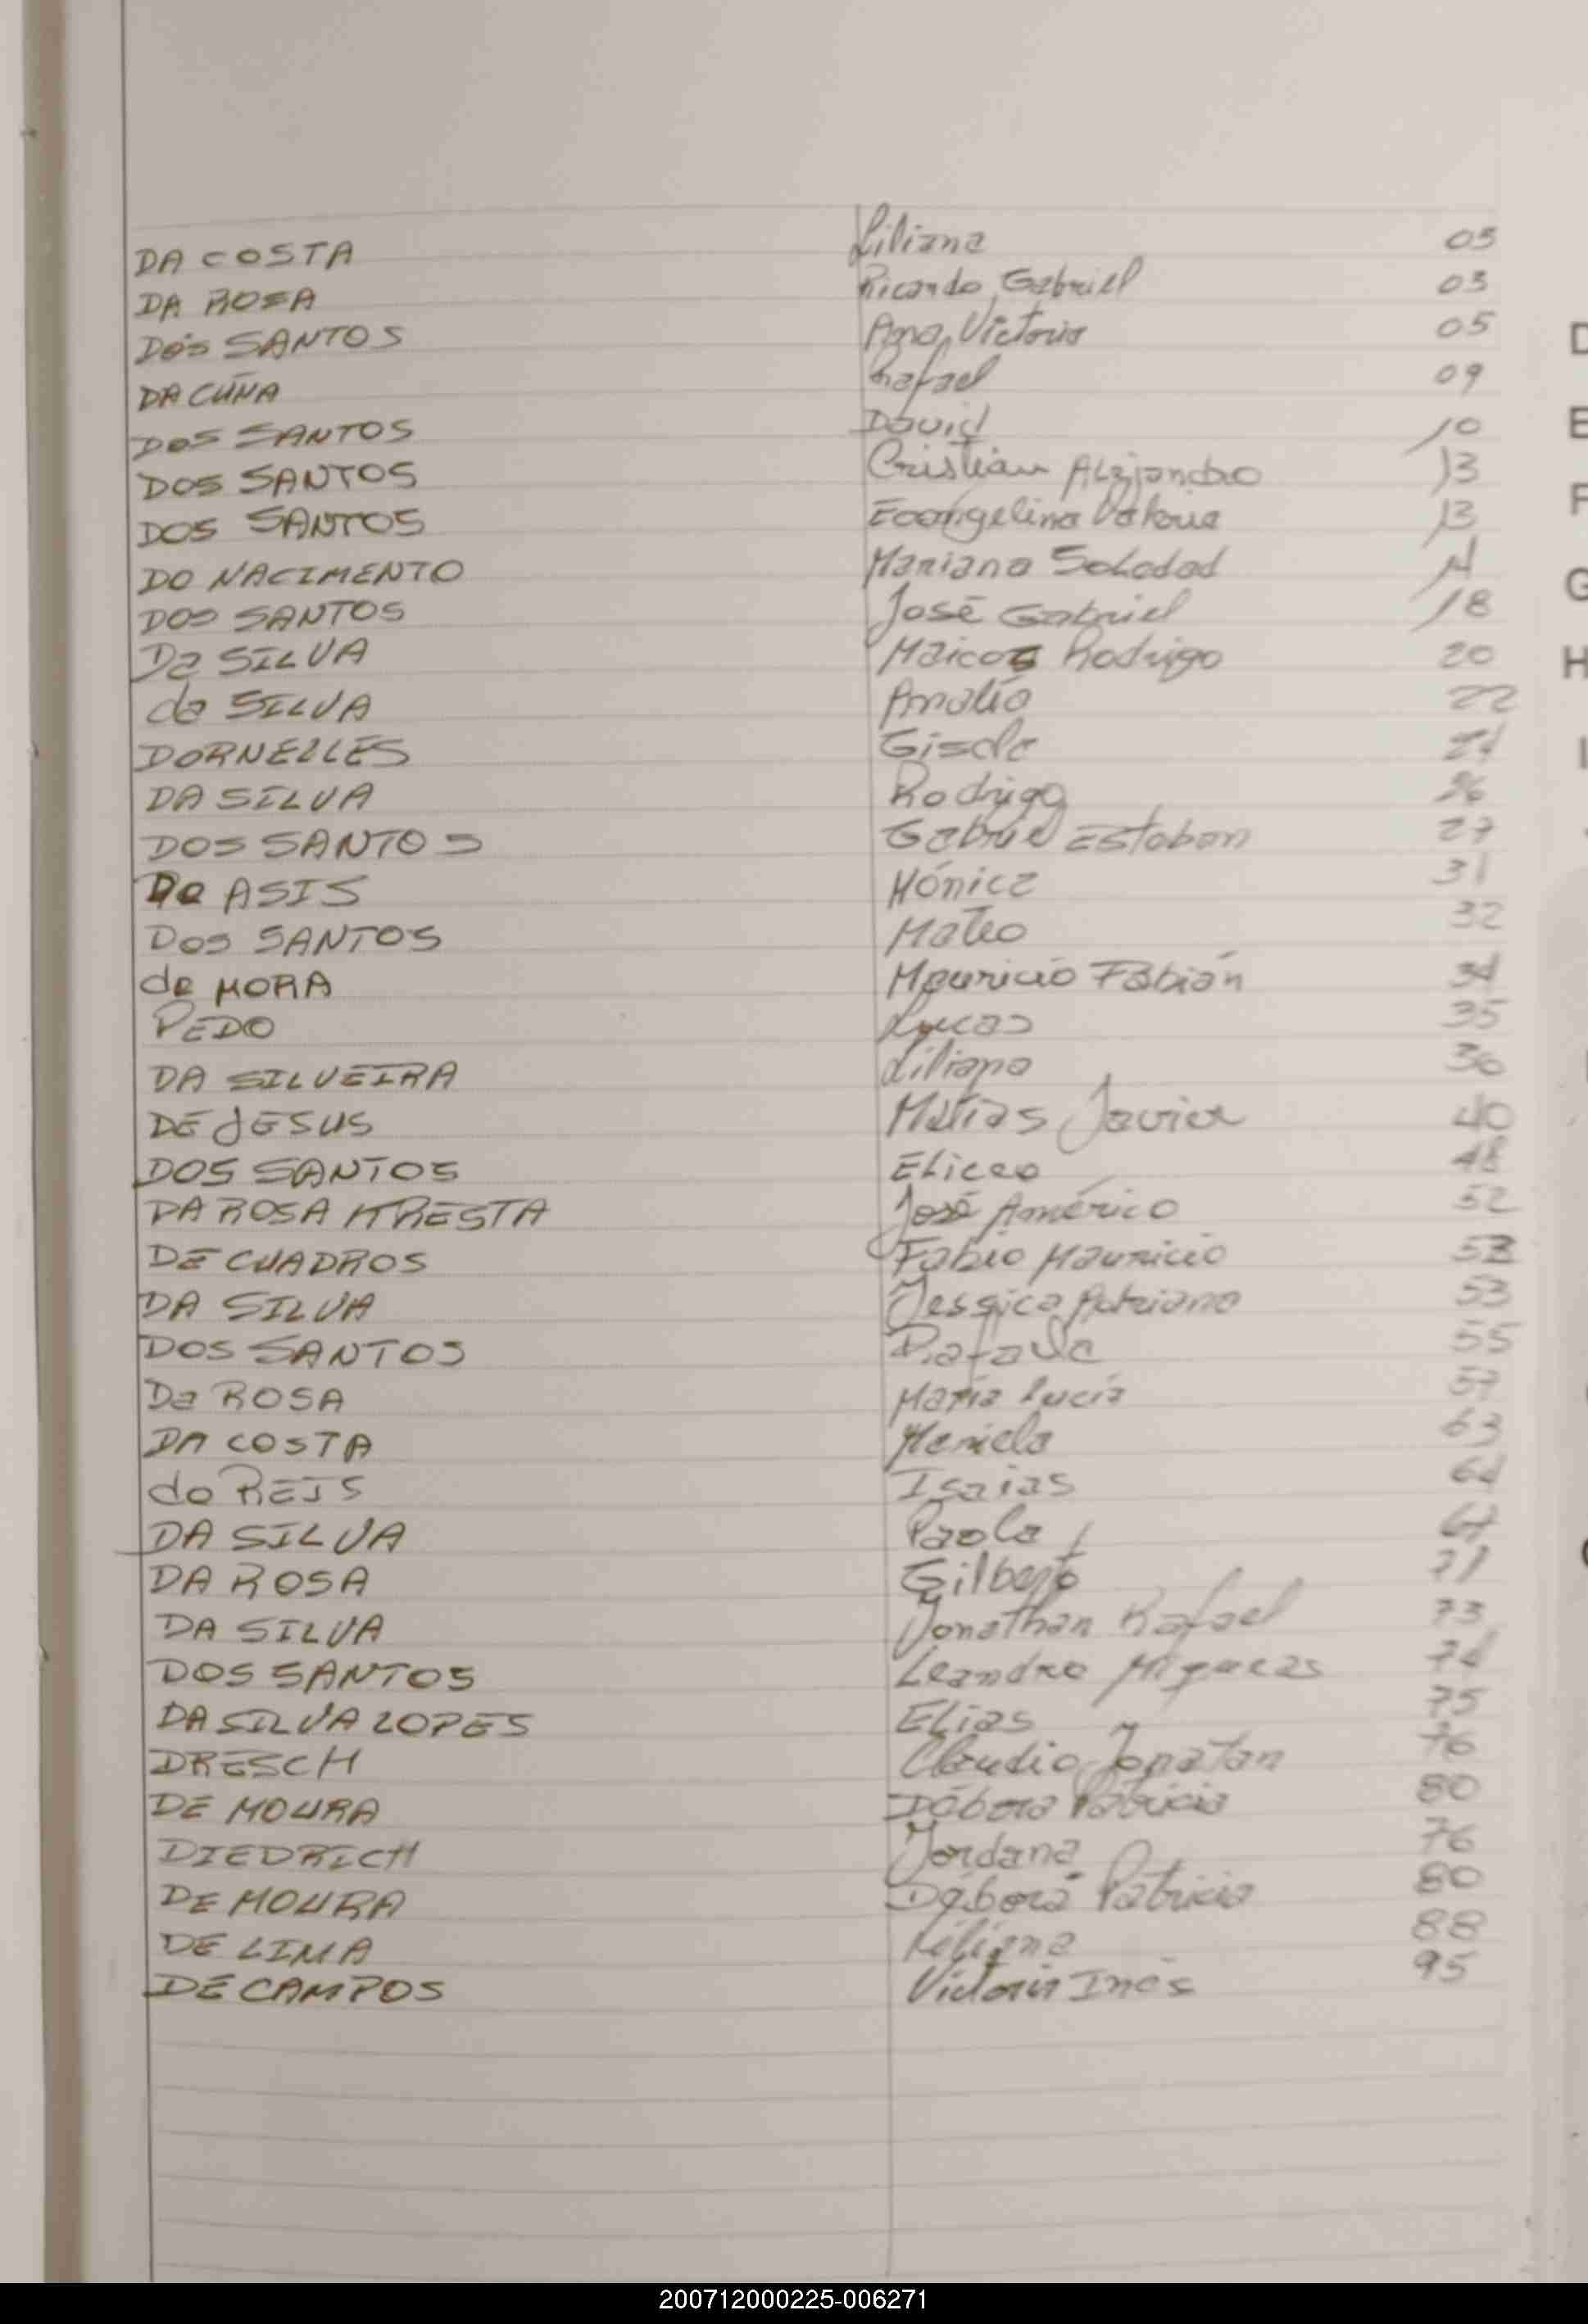 DA COSTA Liliana 05
DA ROSA Ricardo Gabriel 03
Dos SANTOS Ana Victoria 05
DA CUÑA Rafael 09
DOS SANTOS David 10
DOS SANTOS Cristian Alejandro 13
DOS SANTOS Evangelina Valeria 13
DO NACIMENTO Mariana Soledad
DOS SANTOS José Gabriel 18
Da SILVA Maicos Rodrigo 20
da SILVA Analía 22
DORNELLES Gisele 24
DA SILVA Rodrigo 26
DOS SANTOS Gabriel Esteban 27
De ASIS Mónica 31
Dos SANTOS Mateo 32
de MORA Mauricio Fabián 34
PEDO Lucas 35
DA SILVEIRA Liliana 36
DE JESUS Matías Javier 40
DOS SANTOS Eliceo 48
DA ROSA José Américo 52
DE CUADROS Fabio Mauricio
DA SILVA Jessica Adriana 53
DOS SANTOS 55
Da ROSA María Lucía 57
DA COSTA Mariela 63
do REIS Isaias 64
DA SILVA Paola 67
DA ROSA Gilberto 71
DA SILVA Jonathan Rafael 73
DOS SANTOS Leandro 74
DA SILVA LOPES Elias 75
DRESCH Claudio Jonatan 76
DE MOURA Débora Patricia 80
DIEDRICH Jordana 76
DE MOURA Débora Patricia 80
DE LIMA Liliana 88
DE CAMPOS Victoria Inés 95
D
E
F
G
H
I
200712000225-006271